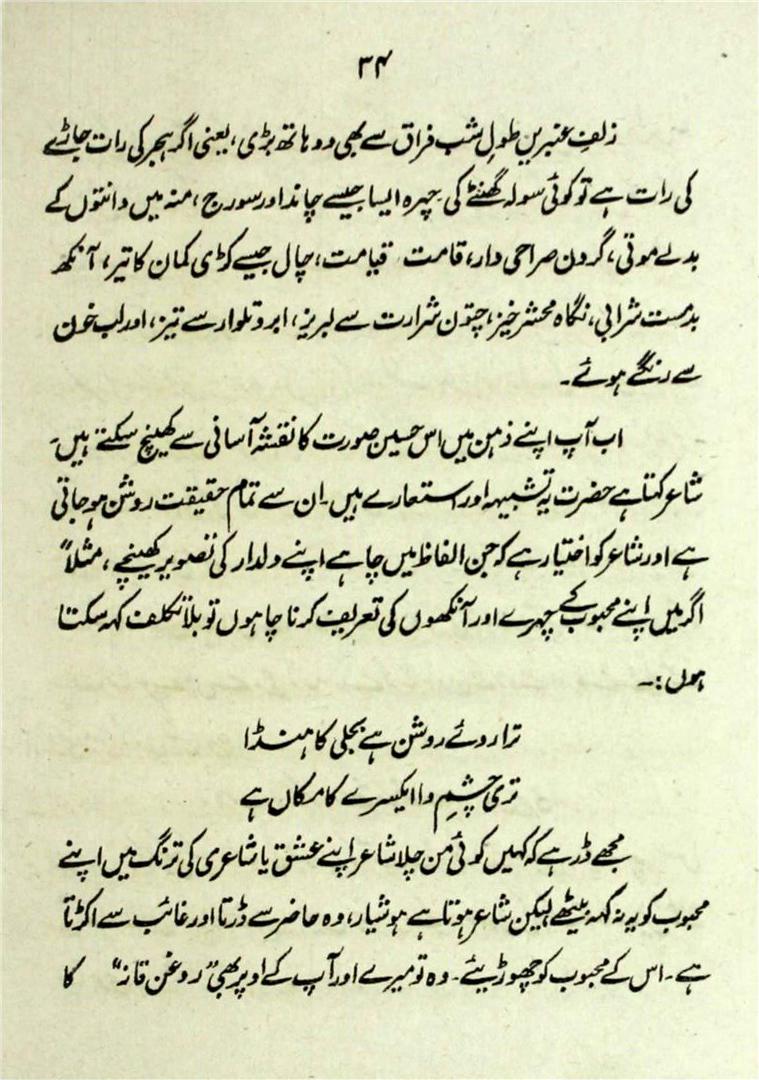 ۳۴
زلفِ عنبریں طولِ شب فراق سے بھی دو ہاتھ بڑی، یعنی اگر ہجر کی رات جاڑے
کی رات ہے تو کوئی سولہ گھنٹے کی۔ چہرہ ایسا جیسے چاند اور سورج، منہ میں دانتوں کے
بدلے موتی، گردن صراحی دار، قامت قیامت، چال جیسے کڑی کمان کا تیر، آنکھ
بدمست شرابی، نگاہ محشر خیز، چتون شرارت سے لبریز، ابرو تلوار سے تیز، اور لب خون
سے رنگے ہوئے۔
اب آپ اپنے ذہن میں اس حسین صورت کا نقشہ آسانی سے کھینچ سکتے ہیں۔
شاعر کہتا ہے حضرت یہ تشبیہہ اور استعارے ہیں۔ ان سے تمام حقیقت روشن ہو جاتی
ہے اور شاعر کو اختیار ہے کہ جن الفاظ میں چاہے اپنے دلدار کی تصویر کھینچے، مثلاً
اگر میں اپنے محبوب کے چہرے اور آنکھوں کی تعریف کرنا چاہوں تو بلا تکلف کہہ سکتا
ہوں:۔
ترا روئے روشن ہے بجلی کا ہنڈا
تری چشمِ وا ایکسرے کا مکاں ہے
مجھے ڈر ہے کہ کہیں کوئی من چلا شاعر اپنے عشق یا شاعری کی ترنگ میں اپنے
محبوب کو یہ نہ کہہ بیٹھے لیکن شاعر ہوتا ہے ہوشیار، وہ حاضر سے ڈرتا اور غائب سے اکڑتا
ہے۔ اس کے محبوب کو چھوڑیئے۔ وہ تو میرے اور آپ کے اوپر بھی "روغن قانہ" کا